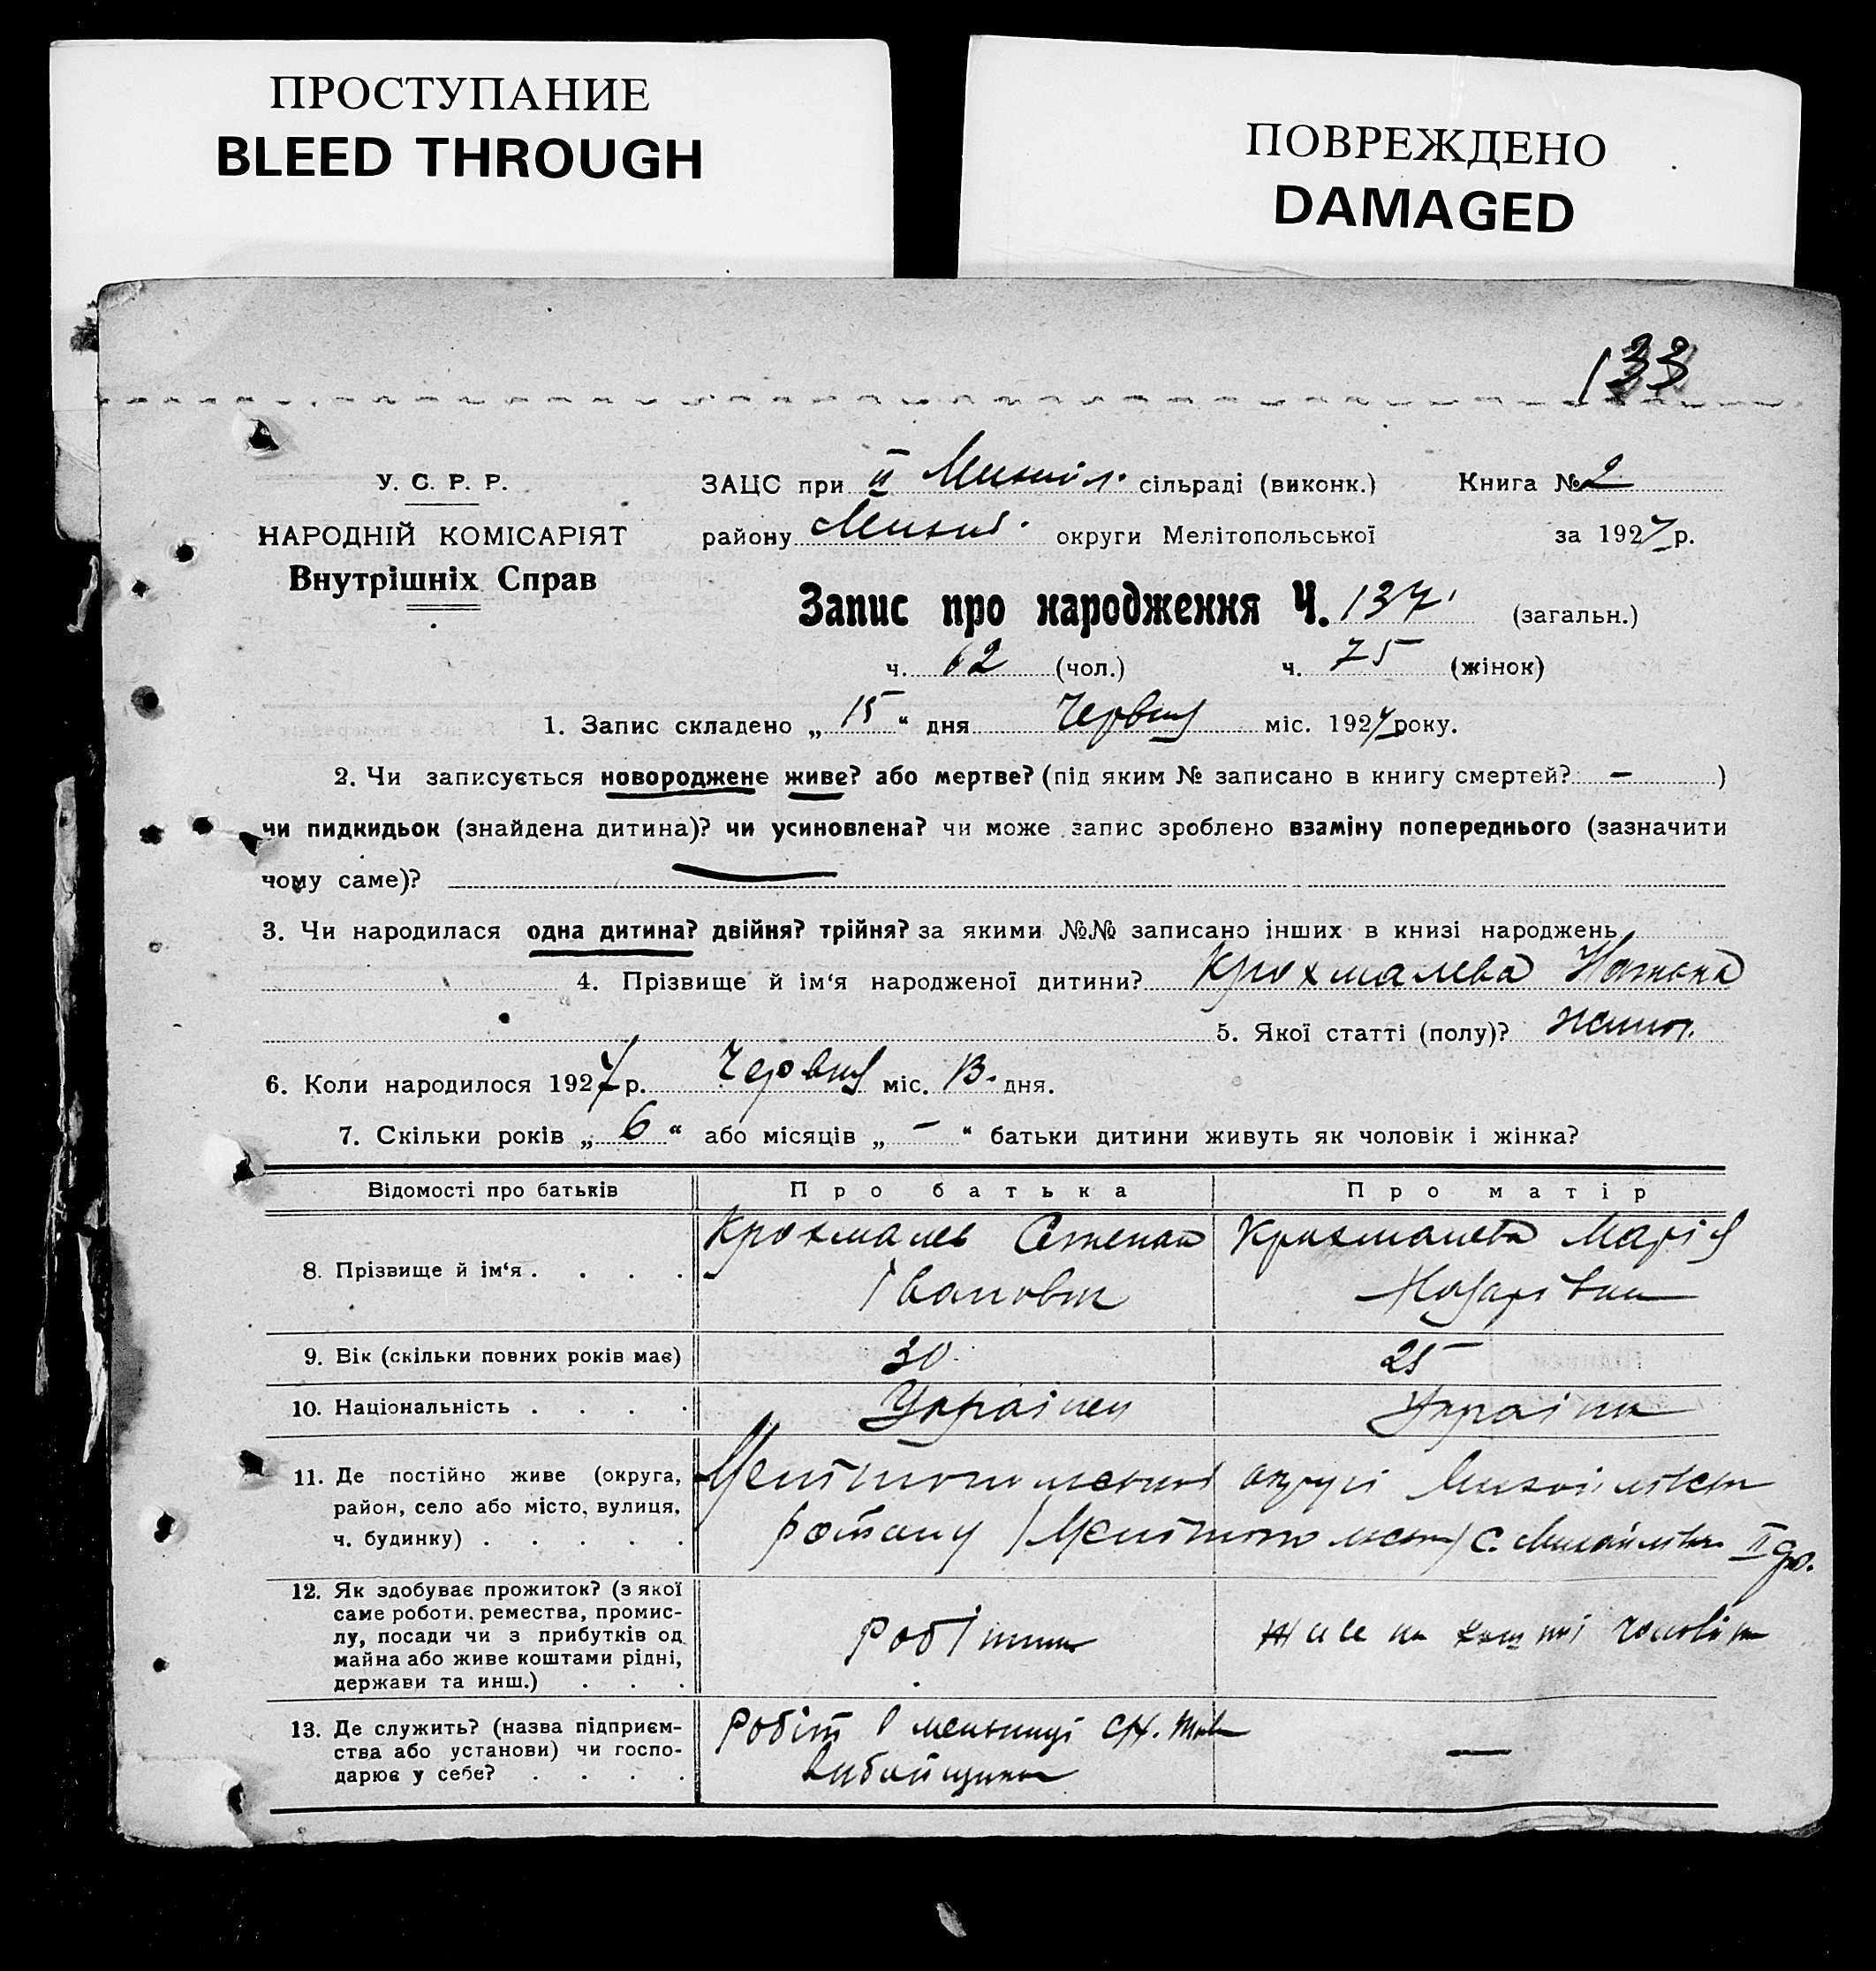 ПРОСТУПАНИЕ
BLEED THROUGH
ПОВРЕЖДЕНО
DAMAGED
133
У. С. Р. Р.
НАРОДНІЙ КОМІСАРІЯТ
Внутрішніх Справ
ЗАЦС при ІІ Михайл. сільраді (виконк.) Книга № 2
району Михай. округи Мелітопольської за 1927 р.
Запис про народження Ч. 137 (загальн.)
ч. 62 (чол.) ч. 75 (жінок)
1. Запис складено „ 15 “ дня Червня міс. 1927 року.
2. Чи записується новороджене живе? або мертве? (під яким № записано в книгу смертей? — )
чи пидкидьок (знайдена дитина)? чи усиновлена? чи може запис зроблено взаміну попереднього (зазначити
чому саме)? —
3. Чи народилася одна дитина? двійня? трійня? за якими №№ записано інших в книзі народжень
4. Прізвище й ім'я народженої дитини? Крохмалева
5. Якої статті (полу)? жіноч.
6. Коли народилося 1927 р. Червня міс. 13. дня.
7. Скільки років „ 6 “ або місяців „ — “ батьки дитини живуть як чоловік і жінка?
Відомості про батьків Про батька Про матір
8. Прізвище й ім'я . . . . Крохмалев Степан Крохмалева Марія
Іванович Назарівна
9. Вік (скільки повних років має) 30 25
10. Національність . . . . Українец Українка
11. Де постійно живе (округа,
район, село або місто, вулиця,
ч. будинку) . . . . .
Мелітопольської округі
району с. Михайлівка ІІ
12. Як здобуває прожиток? (з якої
саме роботи, ремества, промис-
лу, посади чи з прибутків од
майна або живе коштами рідні,
держави та инш.) . . .
Робітник живе на кошти чоловіка
13. Де служить? (назва підприєм-
ства або установи) чи госпо-
дарює у себе? . . . .
Робіт. —